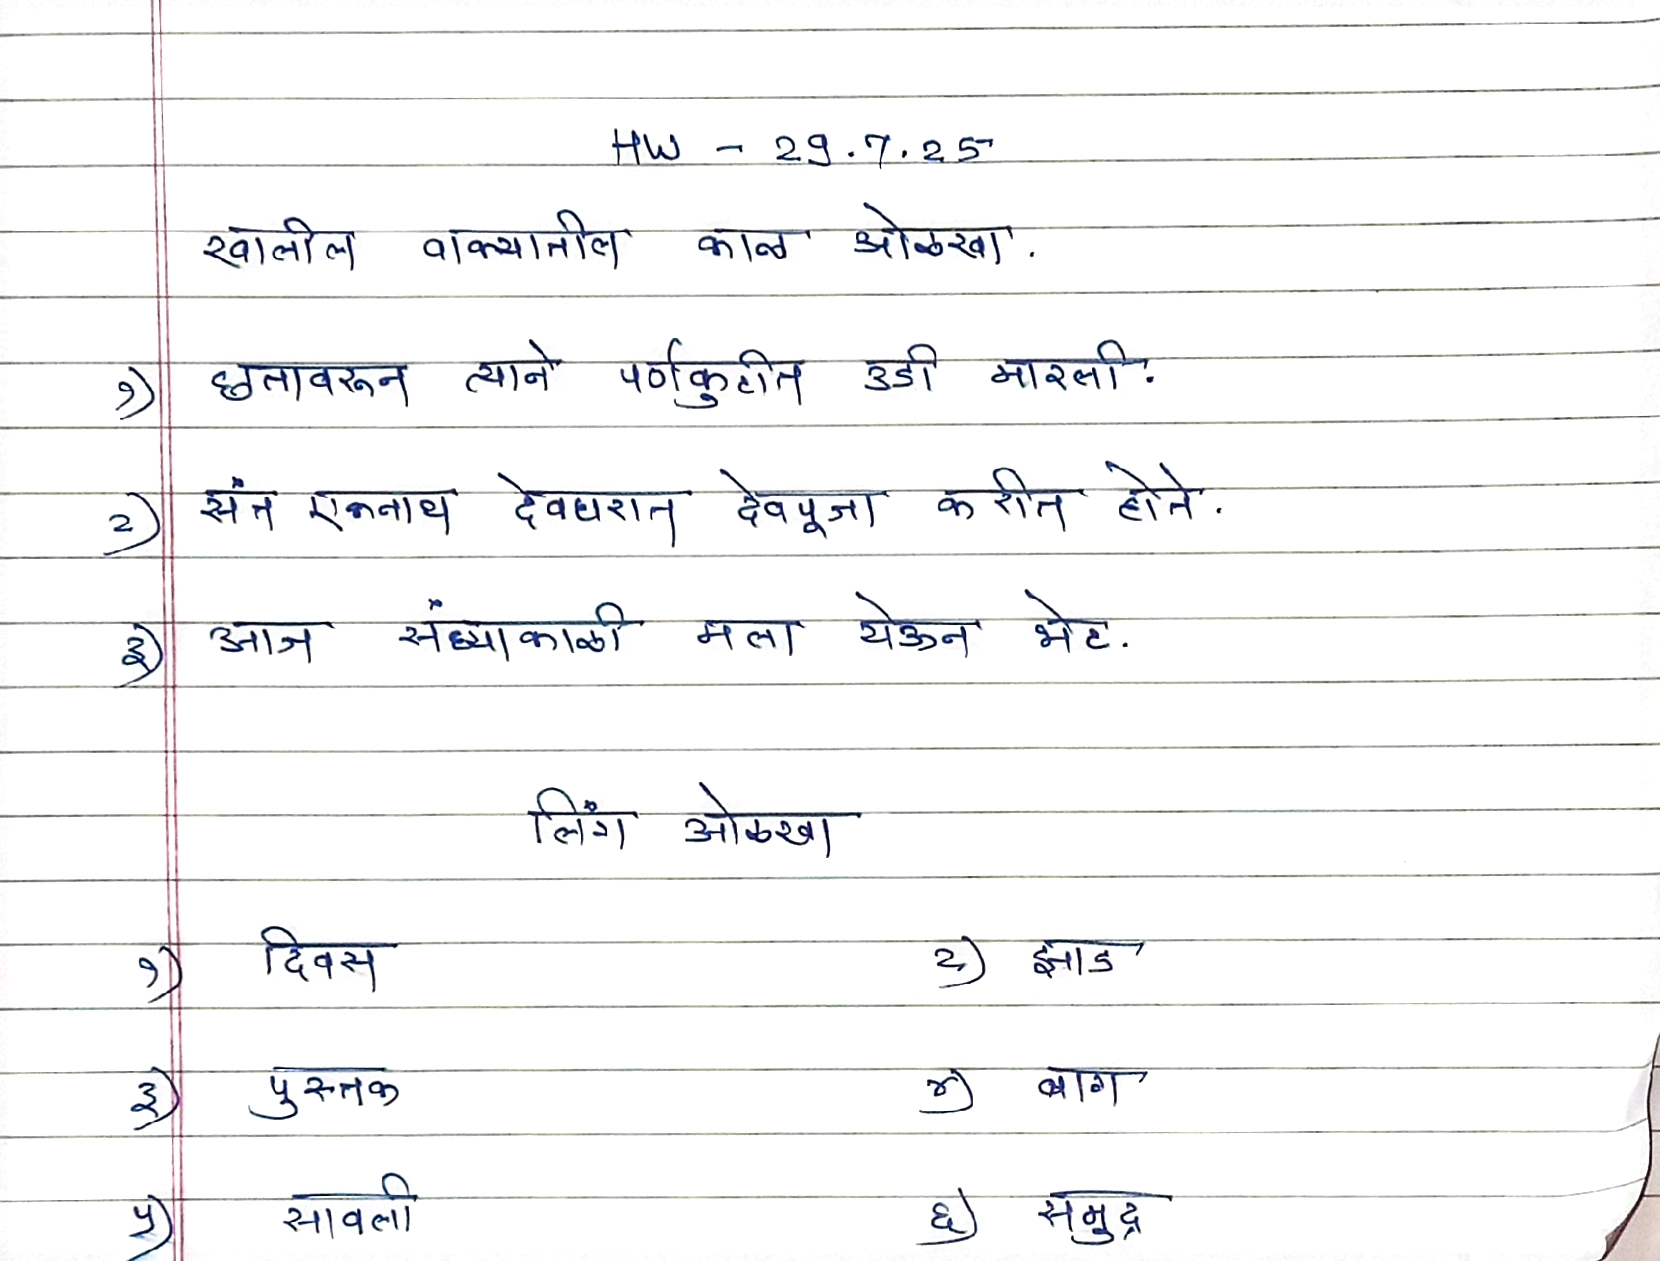 HW - 29.7.25
खालील वाक्यातील काळ ओळखा.
१) छतावरून त्याने पर्णकुटीत उडी मारली.
२) संत एकनाथ देवघरात देवपूजा करीत होते.
३) आज संध्याकाळी मला येऊन भेट.
लिंग ओळखा
१) दिवस २) झाड
३) पुस्तक ४) बाग
५) सावली ६) समुद्र